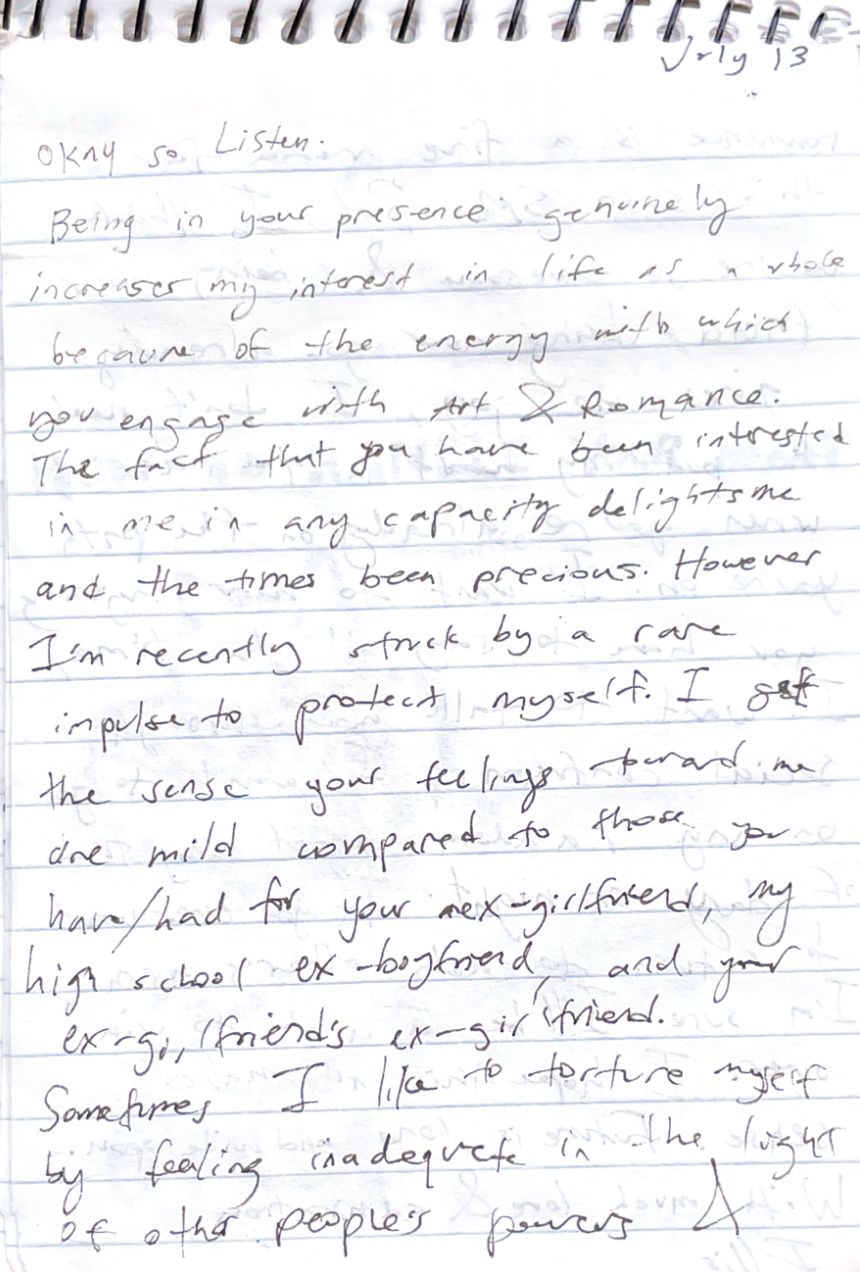 July 13
Okay so Listen.
Being in your presence genuinely
increases my interest in life as a whole
because of the energy with which
you engage with Art & Romance.
The fact that you have been interested
in me in any capacity delights me
and the times been precious. However
I'm recently struck by a rare
impulse to protect myself. I get
the sense your feelings toward me
are mild compared to those you
have/had for your ex-girlfriend, my
high school ex-boyfriend, and your
ex-girlfriend's ex-girlfriend.
Sometimes I like to torture myself
by feeling inadequate in the light
of other people's powers